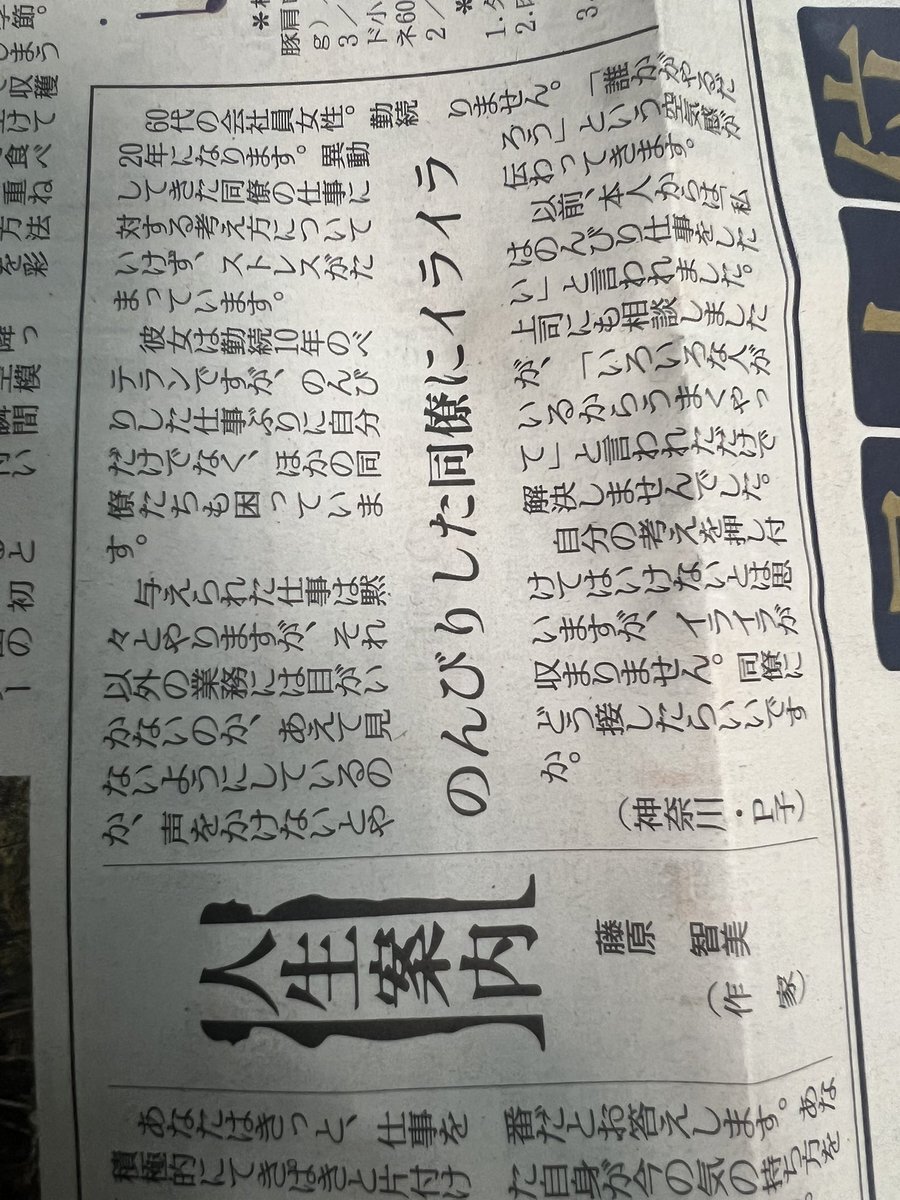 のんびりした同僚にイライラ
60代の会社員女性。勤続
20年になります。異動
してきた同僚の仕事に
対する考え方について
いけず、ストレスがた
まっています。
彼女は勤続10年のベ
テランですが、のんび
りした仕事ぶりに自分
だけでなく、ほかの同
僚たちも困っていま
す。
与えられた仕事は黙
々とやりますが、それ
以外の業務には目がい
かないのか、あえて見
ないようにしているの
か、声をかけないとや
りません。
「誰かがやるだ
ろう」という空気感が
伝わってきます。
以前、本人からは「私
はのんびり仕事をした
い」と言われました。
上司にも相談しました
が、「いろいろな人が
いるからうまくやっ
て」と言われただけで
解決しませんでした。
自分の考えを押し付
けてはいけないとは思
いますが、イライラが
収まりません。同僚に
どう接したらいいです
か。
(神奈川・P子)
人生案内
藤原 智美
(作 家)
あなたはきっと、仕事を
積極的にてきぱきと片付け
番だとお答えします。あな
た自身が今の気の持ち方を